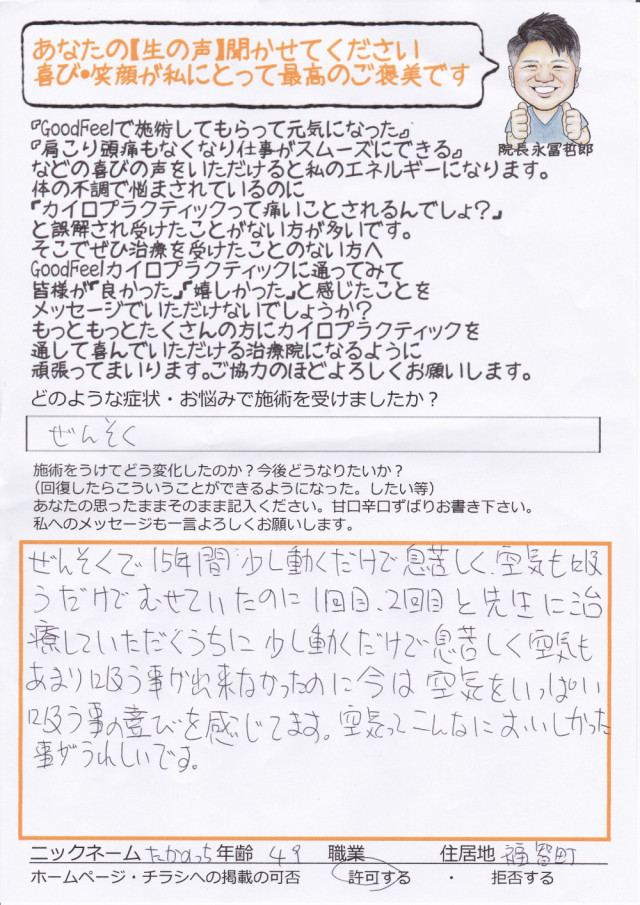 あなたの【生の声】聞かせてください
喜び・笑顔が私にとって最高のご褒美です
院長 永冨哲郎
『GoodFeelで施術してもらって元気になった』
『肩こり頭痛もなくなり仕事がスムーズにできる』
などの喜びの声をいただけると私のエネルギーになります。
体の不調で悩まされているのに
『カイロプラクティックって痛いことされるんでしょ?』
と誤解され受けたことがない方が多いです。
そこでぜひ治療を受けたことのない方へ
GoodFeelカイロプラクティックに通ってみて
皆様が『良かった』『嬉しかった』と感じたことを
メッセージでいただけないでしょうか?
もっともっとたくさんの方にカイロプラクティックを
通して喜んでいただける治療院になるように
頑張ってまいります。ご協力のほどよろしくお願いします。
どのような症状・お悩みで施術を受けましたか?
ぜんそく
施術をうけてどう変化したのか?今後どうなりたいか?
(回復したらこういうことができるようになった。したい等)
あなたの思ったままそのまま記入ください。甘口辛口ずばりお書き下さい。
私へのメッセージも一言よろしくお願いします。
ぜんそくで15年間少し動くだけで息苦しく、空気も吸
うだけでむせていたのに1回目、2回目と先生に治
療していただくうちに少し動くだけで息苦しく空気も
あまり吸う事が出来なかったのに今は空気をいっぱい
吸う事の喜びを感じてます。空気ってこんなにおいしかった
事がうれしいです。
ニックネーム たかのっち 年齢 49 職業 住居地 福智町
ホームページ・チラシへの掲載の可否 許可する ・ 拒否する